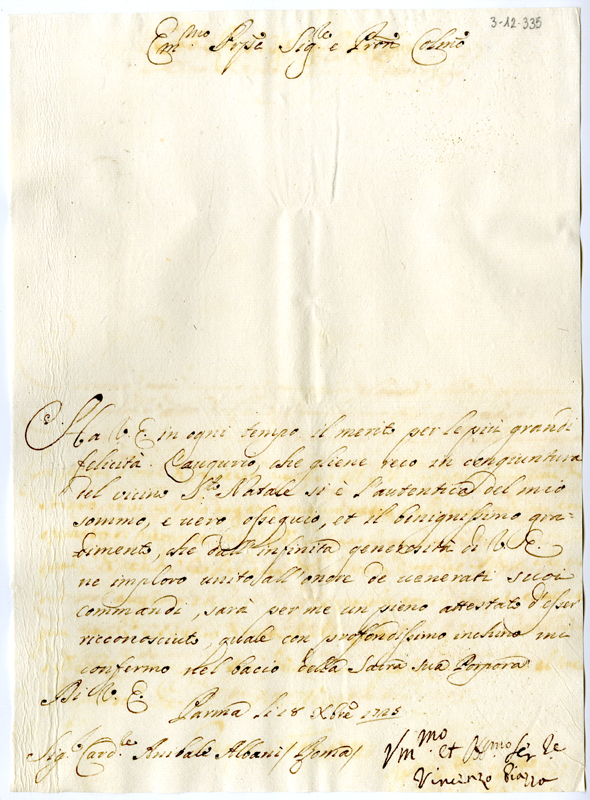 3-12-335
Em.mo Rpse Sig.le e Pron Colmo
Ha V. E. in ogni tempo il merito per le più grandi
felicità. L'augurio, che gliene reco in congiuntura
del vicino S.to Natale si è l'autentica del mio
sommo, e vero ossequio, et il benignissimo gra-
dimento, che dall'infinita generosità di V. E.
ne imploro unito all'onore de venerati suoi
commandi, sarà per me un pieno attestato d'esser
ricconosciuto, quale con profondissimo inchino mi
confermo nel bacio della Sacra sua Porpora
Di V. E.
Parma li 18 Xbre
Sig.r Card.le Anibale Albani / Roma /
Vm.mo et
Vincenzo Piazza